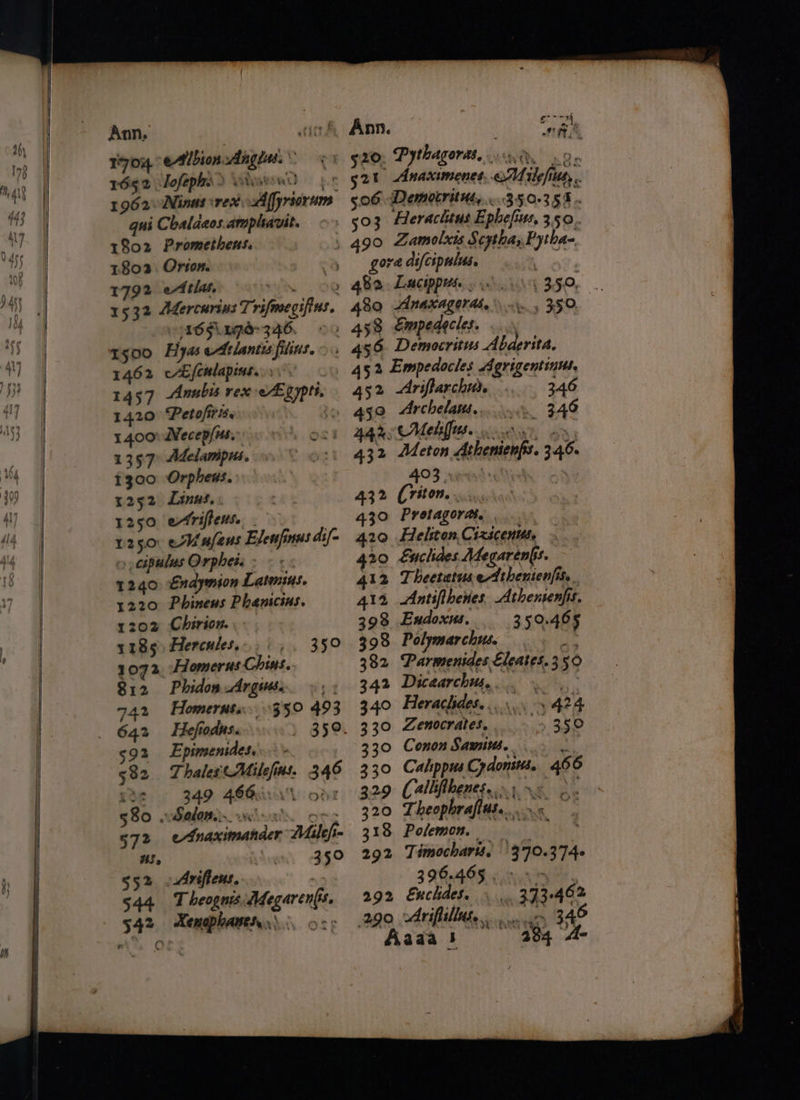 Ann.
1704 Albion Anglus.
1652 Josephus
1962 Ninus rex Assyriorum
qui Chaldaeos ampliavit.
1802 Prometheus.
1802 Orion.
1792 Atlas,
1532 Mercurius Trismegistus.
346.
1500 Hyas Atlantis filius.
1462 Æsculapius.
1457 Anubis rex Ægypti,
1420 Petosiris.
1400 Necepsus.
1357 Melampus.
1300 Orpheus.
1252 Linus.
1250 Aristeus.
1250 Musæus Eleusinus dis-
cipulus Orphei.
1240 Endymion Latmius.
1220 Phineus Phœnicius.
1202 Chirion.
1185 Hercules. 350
1072. Homerus Chius.
812 Phidon Argius.
742 Homerus. 350 493
642 Hesiodus. 350.
592 Epimenides.
582 Thales Milesius. 346
349 466
580 Solon.
572 Anaximander Milesi-
us, 350
552 Aristeus.
544 Theognis Megarensis.
542 Xenophanes.
Ann.
520. Pythagoras,
521 Anaximenes Milesius,
506 Democritus, 350.358
503 Heraclitus Ephesius, 350.
490 Zamolxis Scytha, Pytha-
goræ discipulus.
482 Lucippus. 350.
480 Anaxagoras, 350
458 Empedecles.
456 Democritus Abderita.
452 Empedocles Agrigentinus.
452 Aristarchus. 346
450 Archelaus. 346
442 Melissus.
432 Meton Atheniensis. 346.
403
432 Criton.
430 Protagoras.
420 Heliton Cizicenus,
420 Euclides Megarensis.
412 Theetatus Atheniensis.
412 Antisthenes Atheniensis.
398 Eudoxus. 350.465
398 Polymarchus.
382 Parmenides Eleates. 350
342 Dicæarchus,
340 Heraclides. 424
330 Zenocrates, 350
330 Conon Samius.
330 Calippus Cydonius. 466
329 Callisthenes.
320 Theophrastus.
318 Polemon.
292 Timocharis. 370.374.
396.465
292 Euclides. 373.462
290 Aristillus. 346
Aaaa 284 A-